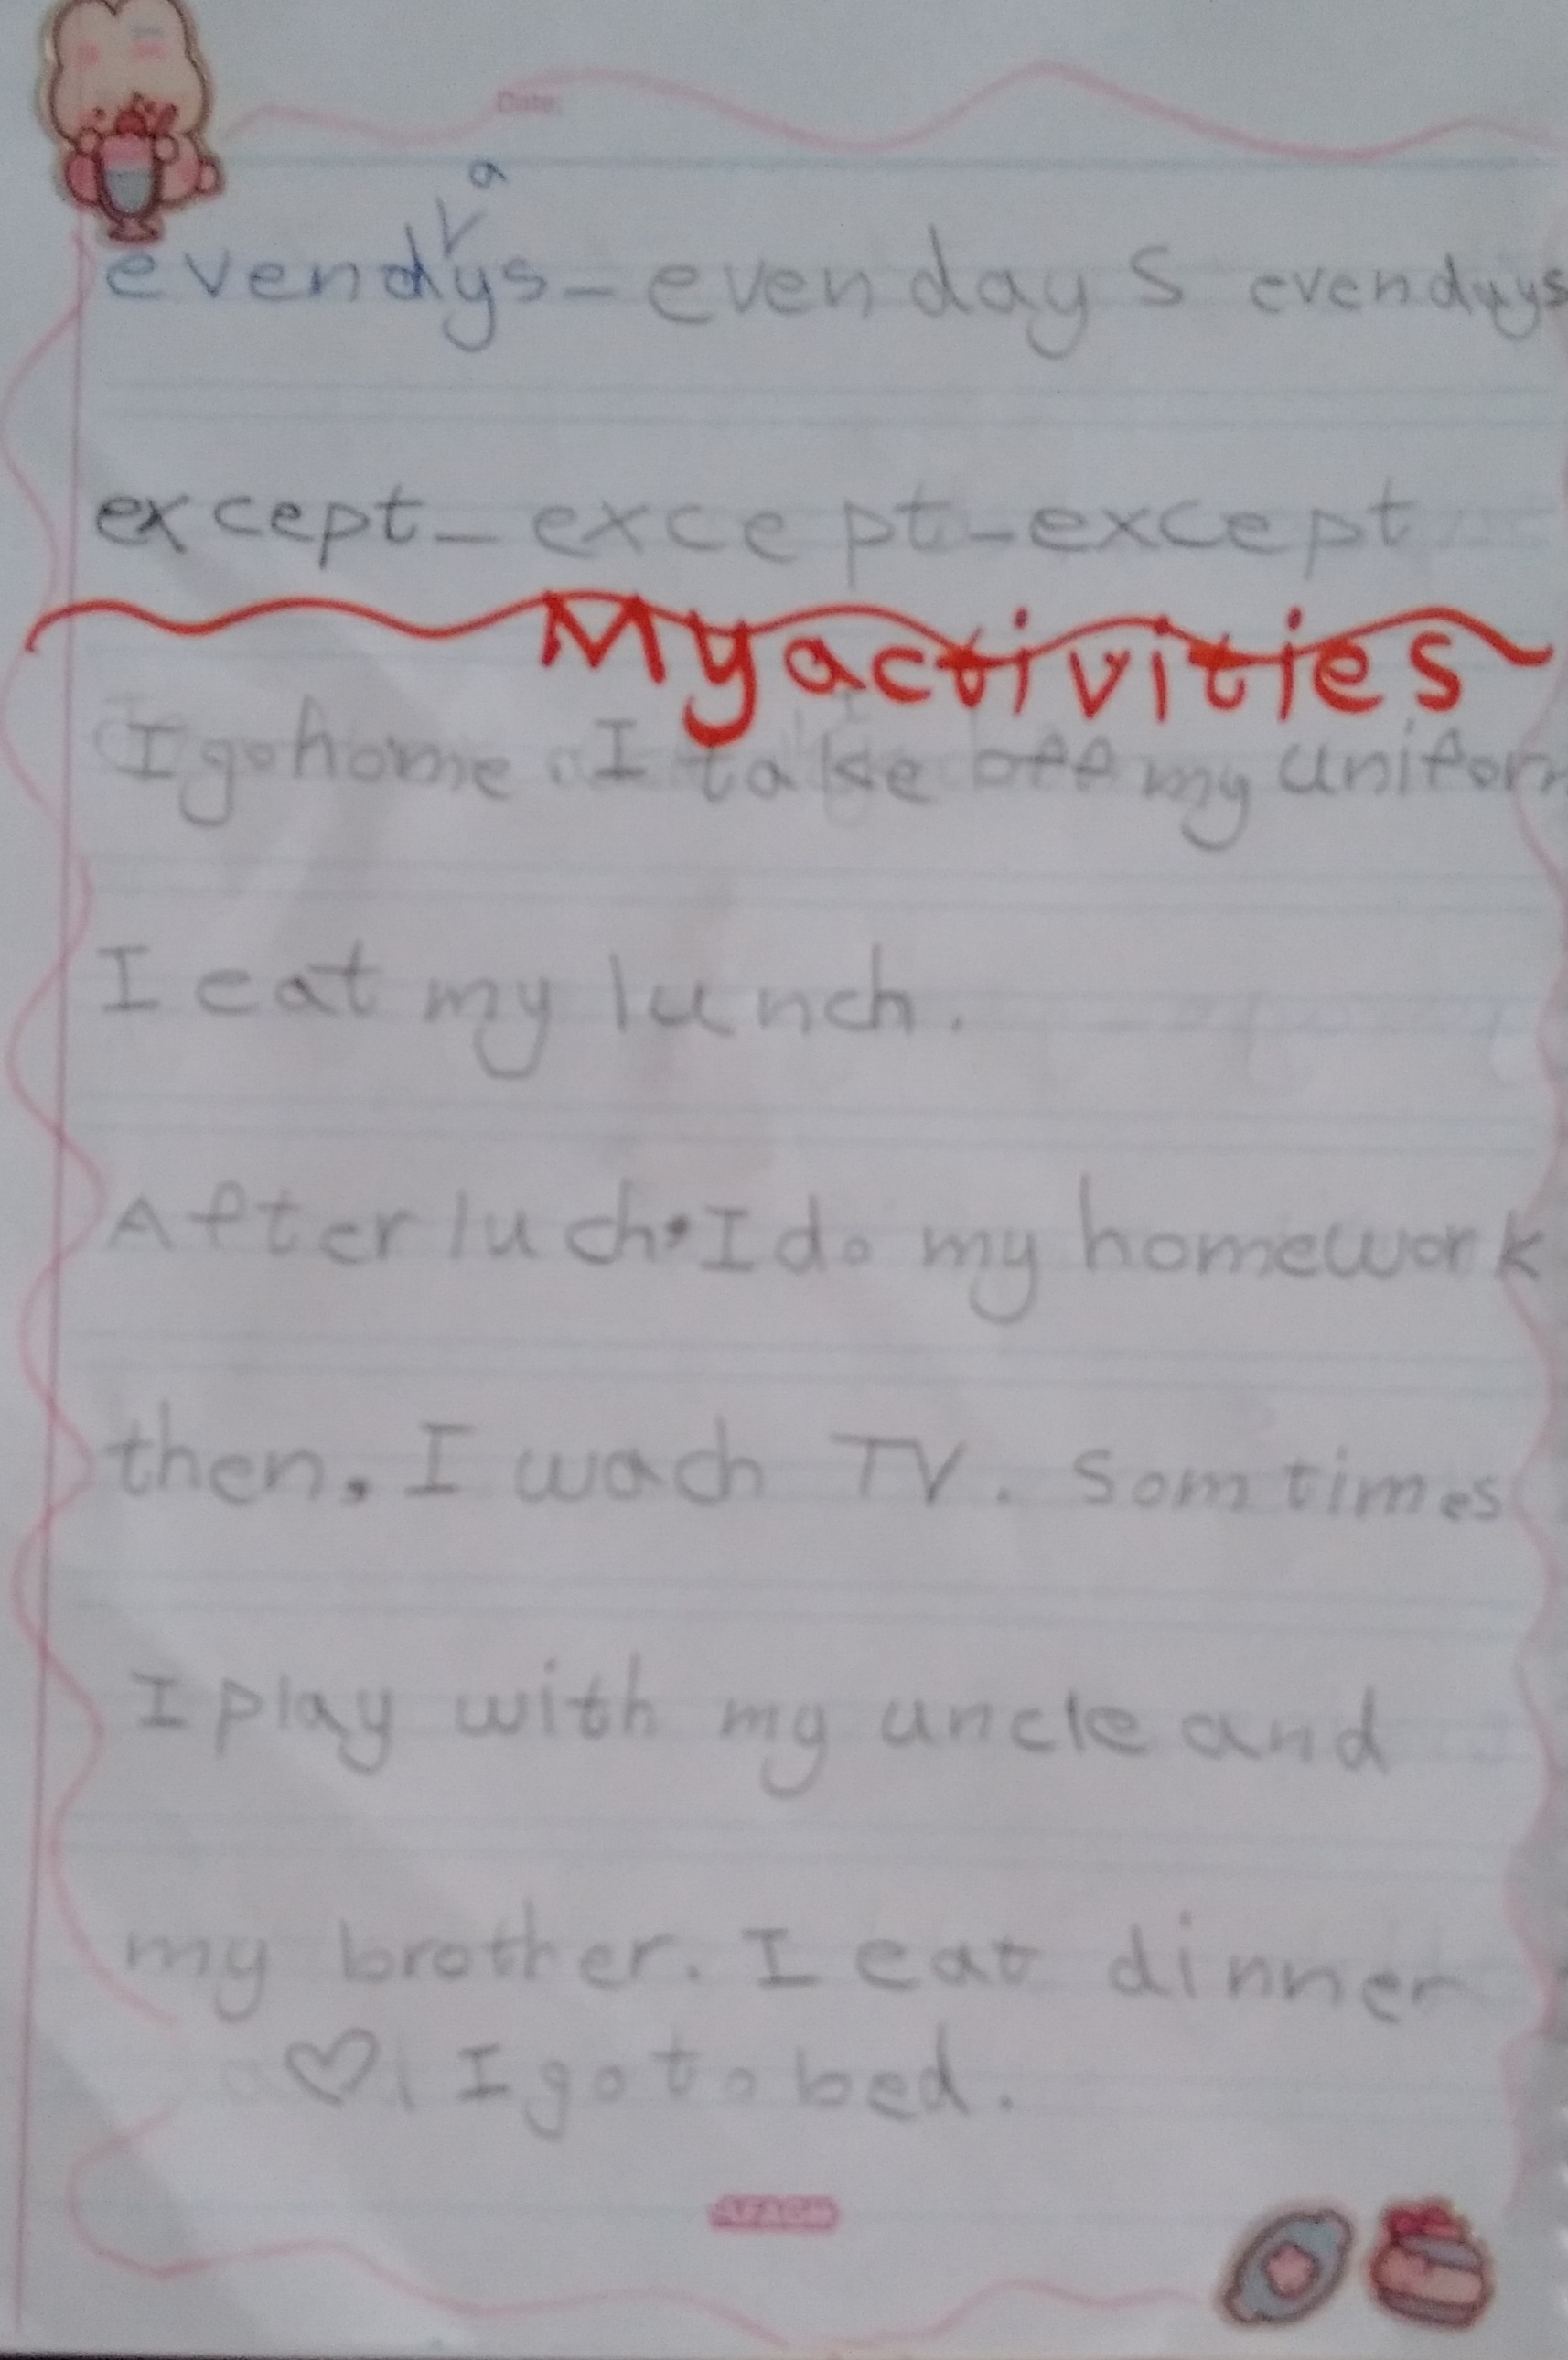 Date:
a
evendys - evendays evendays
except - except - except
My activities
I go home . I take off my uniform
I eat my lunch .
After luch. I do my homework
then, I wach TV . Somtimes
I play with my uncle and
my brother. I eat dinner
I go to bed .